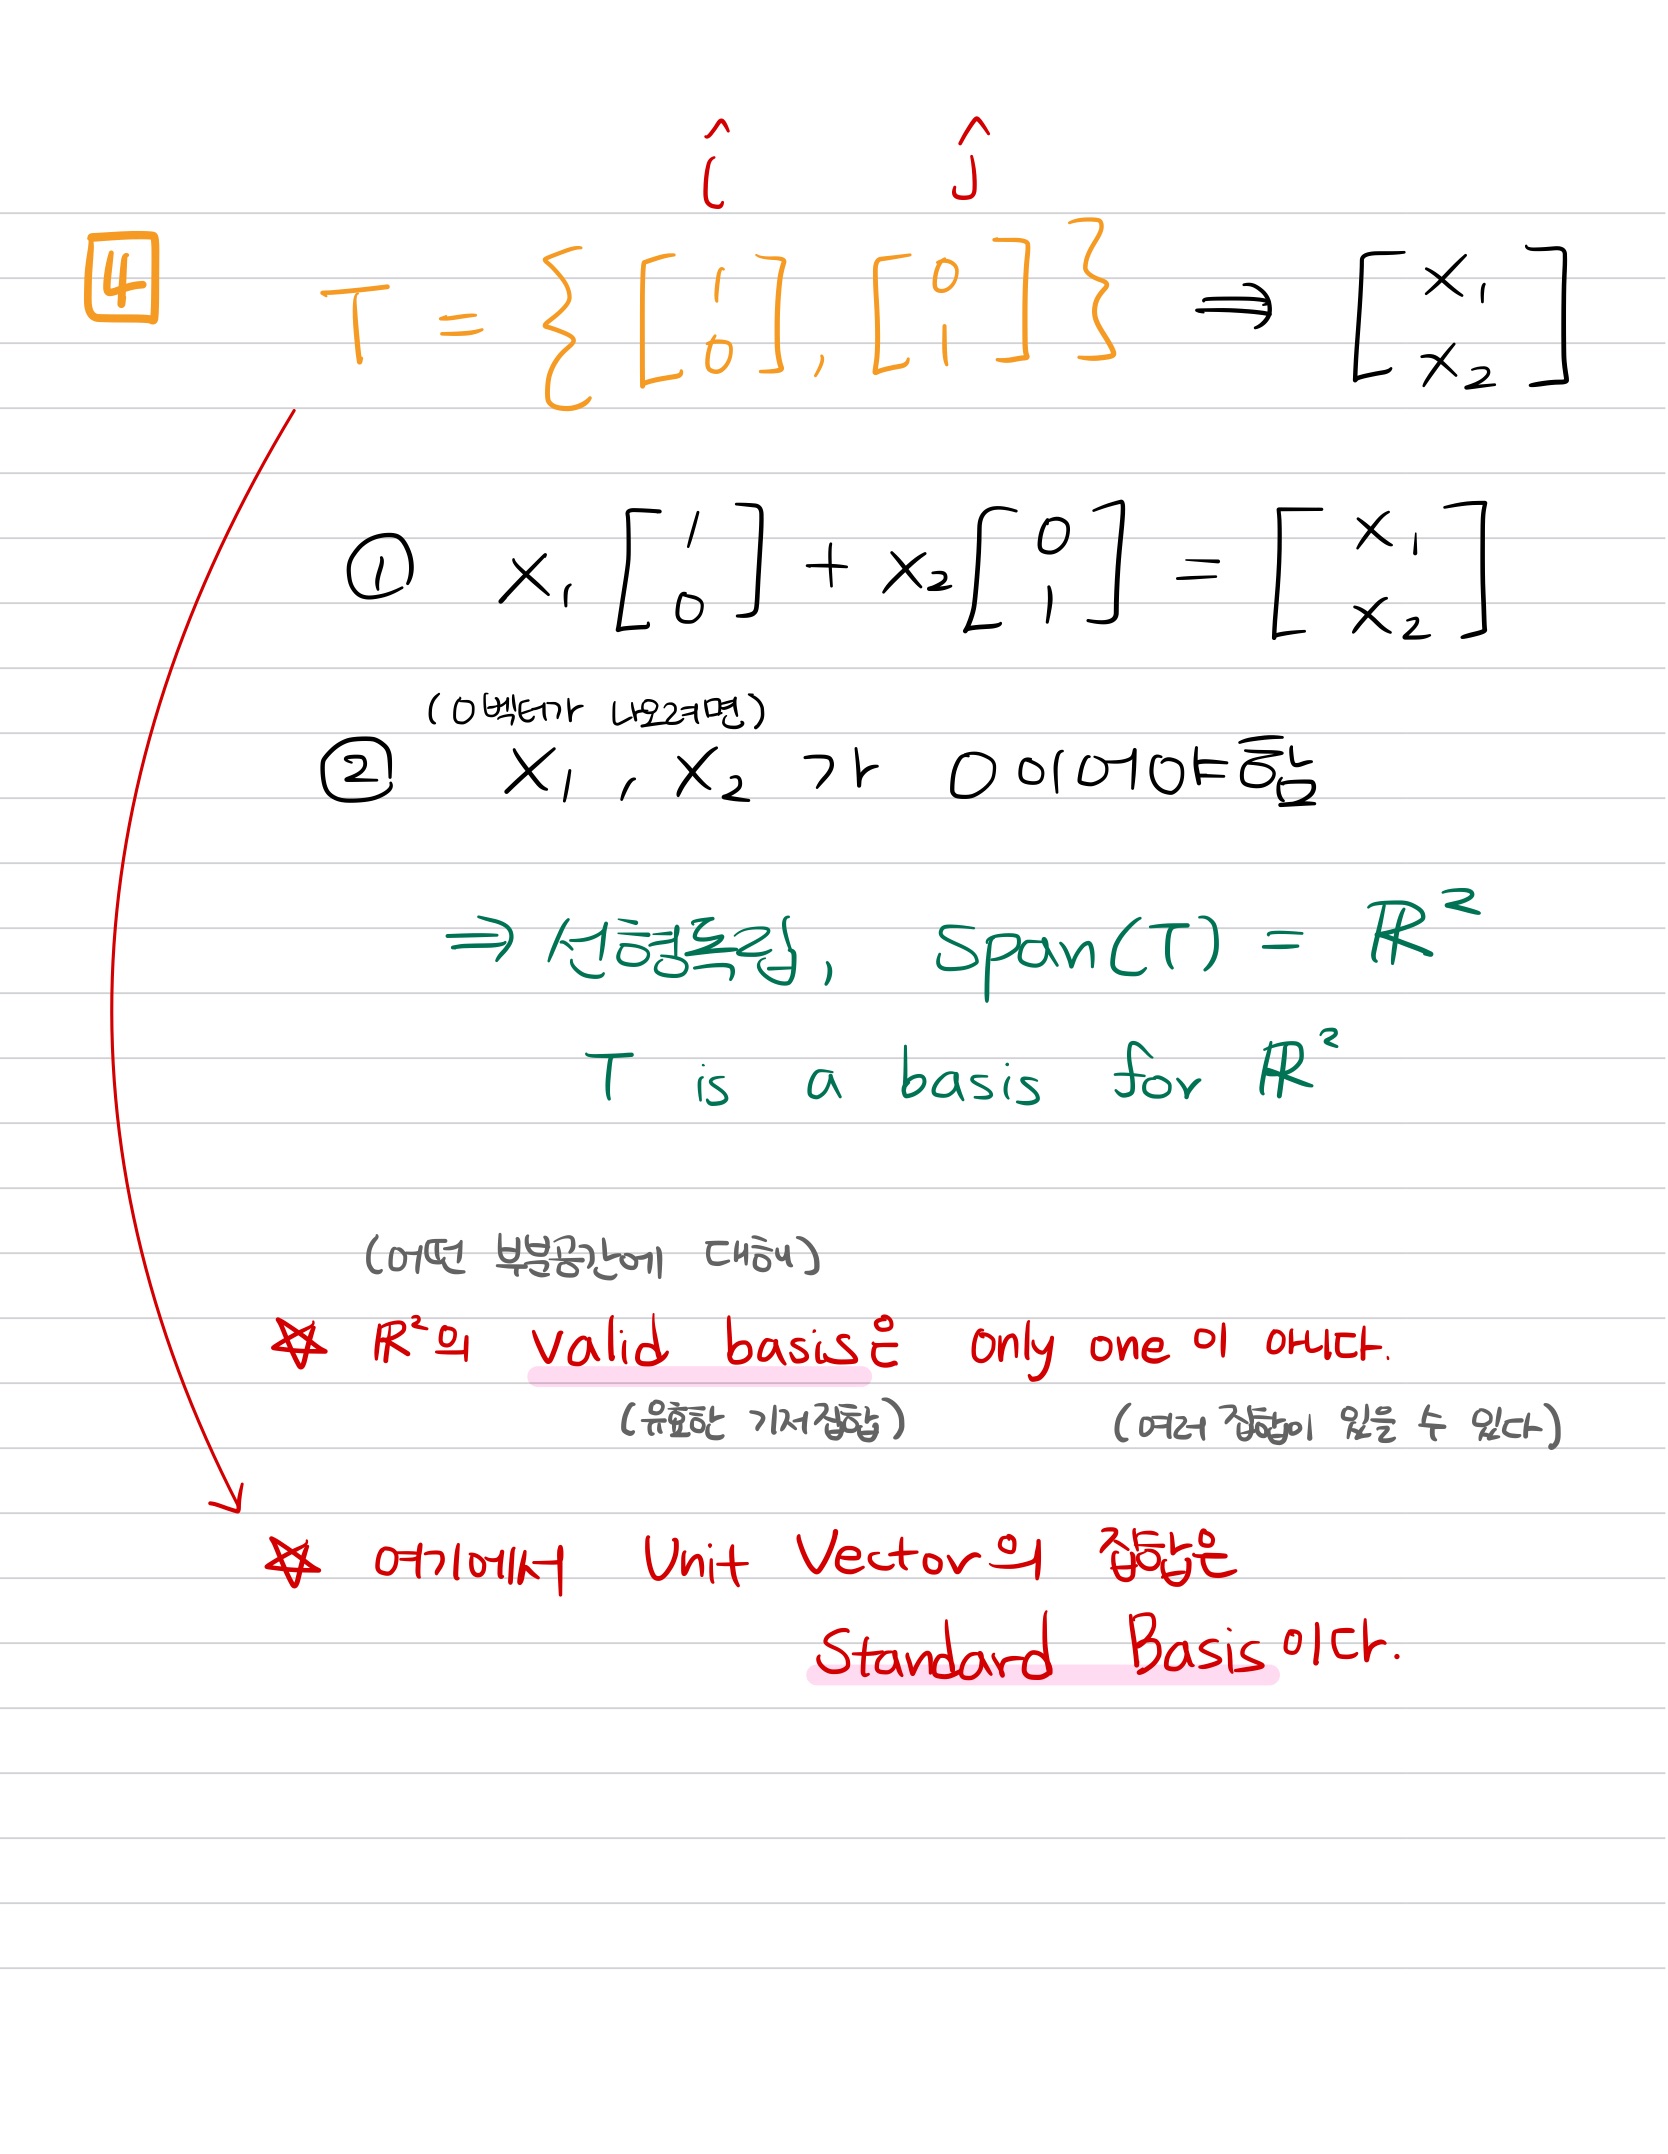 î ĵ
4 T = { [1 0], [0 1] } ⇒ [x₁ x₂]
① x₁ [1 0] + x₂ [0 1] = [x₁ x₂]
(0벡터가 나오려면)
② x₁, x₂ 가 0 이어야함
⇒ 선형독립, Span(T) = ℝ²
T is a basis for ℝ²
(어떤 부분공간에 대해)
☆ ℝ²의 valid basis은 only one 이 아니다.
(유효한 기저집합) (여러 집합이 있을 수 있다)
☆ 여기에서 Unit Vector의 집합은
Standard Basis이다.